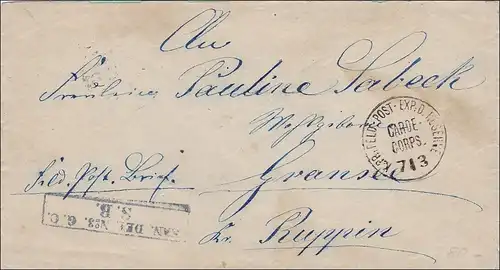 An
Fräulein Pauline Sabeck
K.PR. FELD-POST-EXP.D.
GARDE-
CORPS.
7 3
Gransee
Feld-Post-Brief.
SAN. DET. No3. G. C.
S. B.
Kr. Ruppin